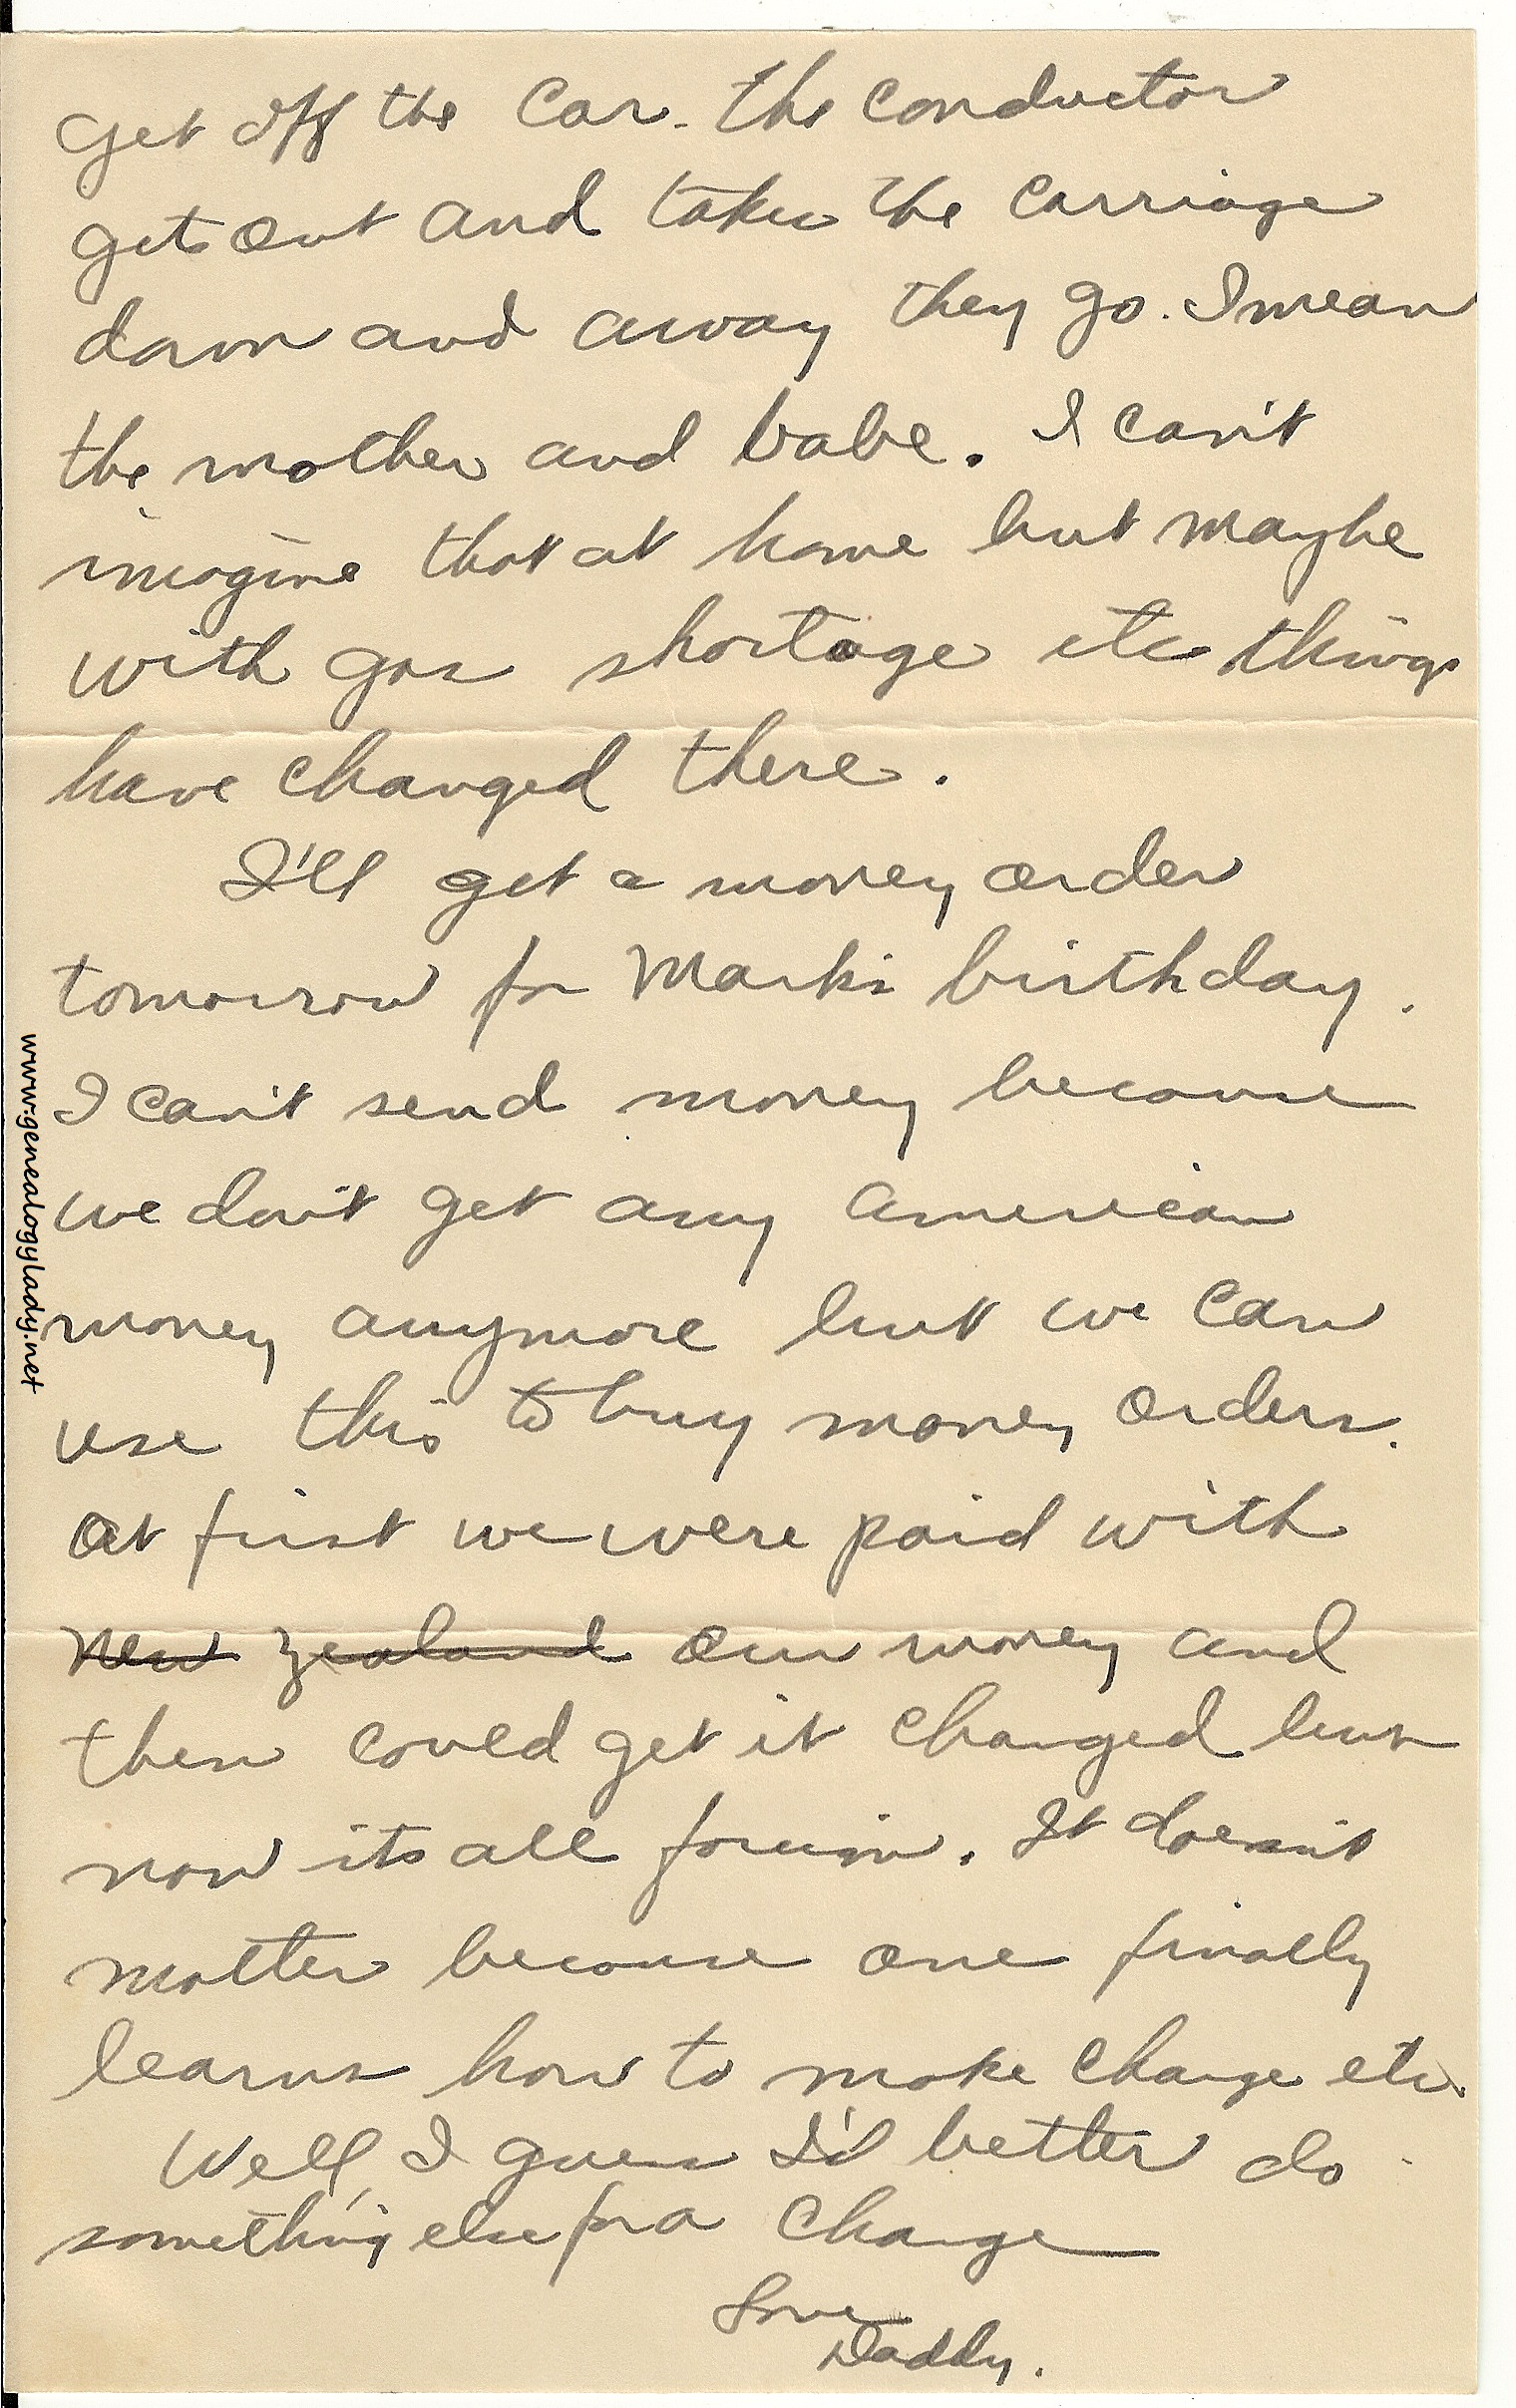 get off the car. The conductor
gets out and takes the carriage
down and away they go. I mean
the mother and babe. I can't
imagine that at home but maybe
with gas shortage etc things
have changed there.
I'll get a money order
tomorrow for Mark's birthday.
I can't send money because
we don't get any american
money anymore but we can
use this to buy money orders.
At first we were paid with
New Zealand our money and
then could get it changed but
now its all foreign. It doesn't
matter because one finally
learns how to make change etc.
Well, I guess I'd better do
something else for a change
Love
Daddy.
www.genealogylady.net